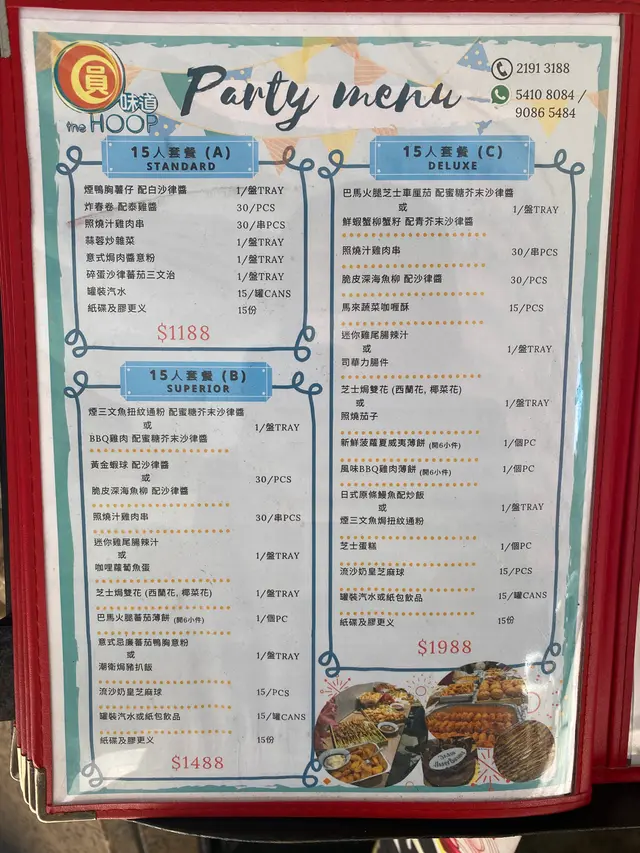 圓
味道
the HOOP
Party menu
2191 3188
5410 8084 /
9086 5484
15人套餐 (A)
STANDARD
煙鴨胸薯仔 配白沙律醬 1/盤TRAY
炸春卷 配泰雞醬 30/PCS
照燒汁雞肉串 30/串PCS
蒜蓉炒雜菜 1/盤TRAY
意式焗肉醬意粉 1/盤TRAY
碎蛋沙律蕃茄三文治 1/盤TRAY
罐裝汽水 15/罐CANS
紙碟及膠更义 15份
$1188
15人套餐 (B)
SUPERIOR
煙三文魚扭紋通粉 配蜜糖芥末沙律醬
或 1/盤TRAY
BBQ雞肉 配蜜糖芥末沙律醬
黃金蝦球 配沙律醬
或 30/PCS
脆皮深海魚柳 配沙律醬
照燒汁雞肉串 30/串PCS
迷你雞尾腸辣汁
或 1/盤TRAY
咖哩蘿蔔魚蛋
芝士焗雙花 (西蘭花, 椰菜花) 1/盤TRAY
巴馬火腿蕃茄薄餅 (開6小件) 1/個PC
意式忌廉蕃茄鴨胸意粉
或 1/盤TRAY
潮衛焗豬扒飯
流沙奶皇芝麻球 15/PCS
罐裝汽水或紙包飲品 15/罐CANS
紙碟及膠更义 15份
$1488
15人套餐 (C)
DELUXE
巴馬火腿芝士車厘茄 配蜜糖芥末沙律醬
或 1/盤TRAY
鮮蝦蟹柳蟹籽 配青芥末沙律醬
照燒汁雞肉串 30/串PCS
脆皮深海魚柳 配沙律醬 30/PCS
馬來蔬菜咖喱酥 15/PCS
迷你雞尾腸辣汁
或 1/盤TRAY
司華力腸件
芝士焗雙花 (西蘭花, 椰菜花)
或 1/盤TRAY
照燒茄子
新鮮菠蘿夏威夷薄餅 (開6小件) 1/個PC
風味BBQ雞肉薄餅 (開6小件) 1/個PC
日式原條鰻魚配炒飯
或 1/盤TRAY
煙三文魚焗扭紋通粉
芝士蛋糕 1/個PC
流沙奶皇芝麻球 15/PCS
罐裝汽水或紙包飲品 15/罐CANS
紙碟及膠更义 15份
$1988